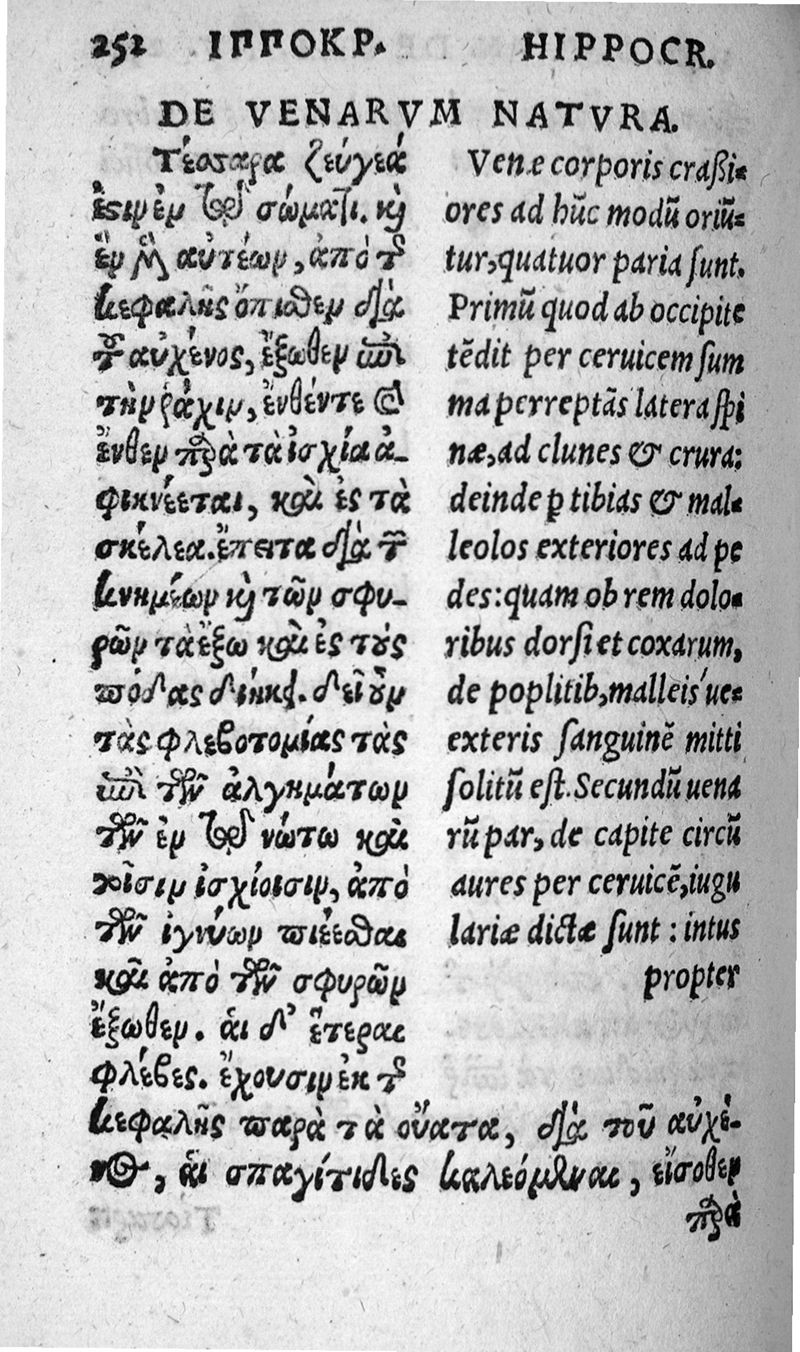 252 ΙΠΠΟΚΡ. HIPPOCR.
DE VENARVM NATVRA.
Τέσσαρα ζεύγεά
ἐστιν ἐν τῷ σώματι. καὶ
ἓν μὲν αὐτέων, ἀπὸ τῆς
κεφαλῆς ὄπισθεν διὰ
τοῦ αὐχένος, ἔξωθεν ἐπὶ
τὴν ῥάχιν, ἔνθέν τε καὶ
ἔνθεν παρὰ τὰ ἰσχία ἀ-
φικνέεται, καὶ ἐς τὰ
σκέλεα. ἔπειτα διὰ τῶν
κνημέων καὶ τῶν σφυ-
ρῶν τὰ ἔξω καὶ ἐς τοὺς
πόδας διήκει. δεῖ οὖν
τὰς φλεβοτομίας τὰς
ἐπὶ τῶν ἀλγημάτων
τῶν ἐν τῷ νώτω καὶ
τοῖσιν ἰσχίοισιν, ἀπὸ
τῶν ἰγνύων ποιέεσθαι
καὶ ἀπὸ τῶν σφυρῶν
ἔξωθεν. ἁι δ' ἕτεραι
φλέβες. ἔχουσιν ἐκ τῆς
κεφαλῆς παρὰ τὰ οὔατα, διὰ τοῦ αὐχέ-
νος, ἁι σπαγίτιδες καλεόμεναι, εἴσοθεν
παρὰ
Venæ corporis craßi-
ores ad hūc modū oriū-
tur, quatuor paria sunt.
Primū quod ab occipite
tēdit per ceruicem sum
ma perreptās latera spi
næ, ad clunes & crura:
deinde ꝑ tibias & mal-
leolos exteriores ad pe
des: quam ob rem dolo-
ribus dorsi et coxarum,
de poplitib, malleis'ue-
exteris sanguinē mitti
solitū est. Secundū uena
rū par, de capite circū
aures per ceruicē, iugu
lariæ dictæ sunt: intus
propter